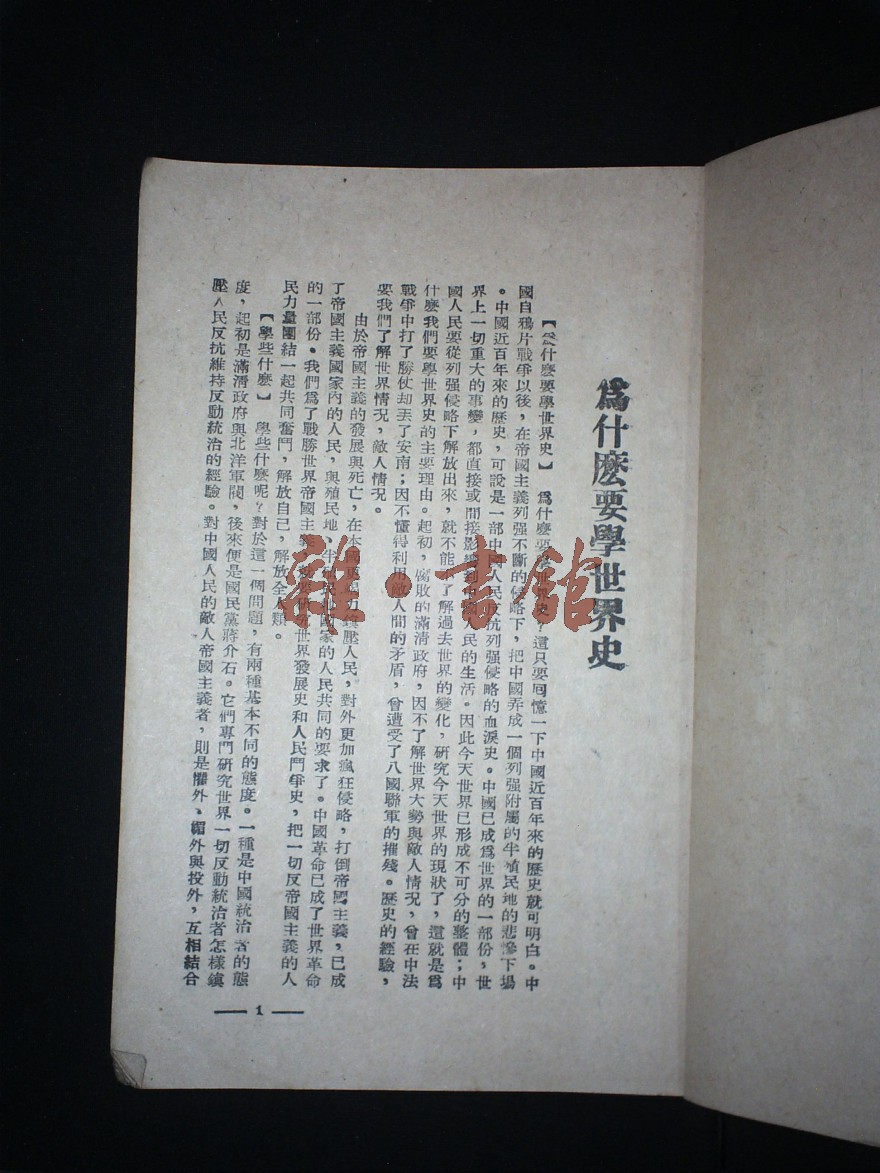 為什麽要學世界史
【為什麽要學世界史】 為什麽要學世界史?這只要回憶一下中國近百年來的歷史就可明白。中
國自鴉片戰爭以後,在帝國主義列强不斷的侵略下,把中國弄成一個列强附屬的半殖民地的悲慘下塲
。中國近百年來的歷史,可說是一部中國人民反抗列强侵略的血淚史。中國已成爲世界的一部份,世
界上一切重大的事變,都直接或間接影響到中國人民的生活。因此今天世界已形成不可分的整體;中
國人民要從列强侵略下解放出來,就不能不了解過去世界的變化,研究今天世界的現狀了,這就是爲
什麽我們要學世界史的主要理由。起初,腐敗的滿清政府,因不了解世界大勢與敵人情況,曾在中法
戰爭中打了勝仗却丟了安南;因不懂得利用敵人間的矛盾,曾遭受了八國聯軍的摧殘。歷史的經驗,
要我們了解世界情況,敵人情況。
由於帝國主義的發展與死亡,在本國更壓人民,對外更加瘋狂侵略,打倒帝國主義,已成
了帝國主義國家內的人民,與殖民地、半殖民地國家的人民共同的要求了。中國革命已成了世界革命
的一部份。我們爲了戰勝世界帝國主義,研究世界發展史和人民鬥爭史,把一切反帝國主義的人
民力量團結一起共同奮鬥,解放自己,解放全人類。
【學些什麽】 學些什麽呢?對於這一個問題,有兩種基本不同的態度。一種是中國統治者的態
度,起初是滿清政府與北洋軍閥,後來便是國民黨蔣介石。它們專門研究世界一切反動統治者怎樣鎮
壓人民反抗維持反動統治的經驗。對中國人民的敵人帝國主義者,則是懼外、媚外與投外,互相結合
1
雜·書館